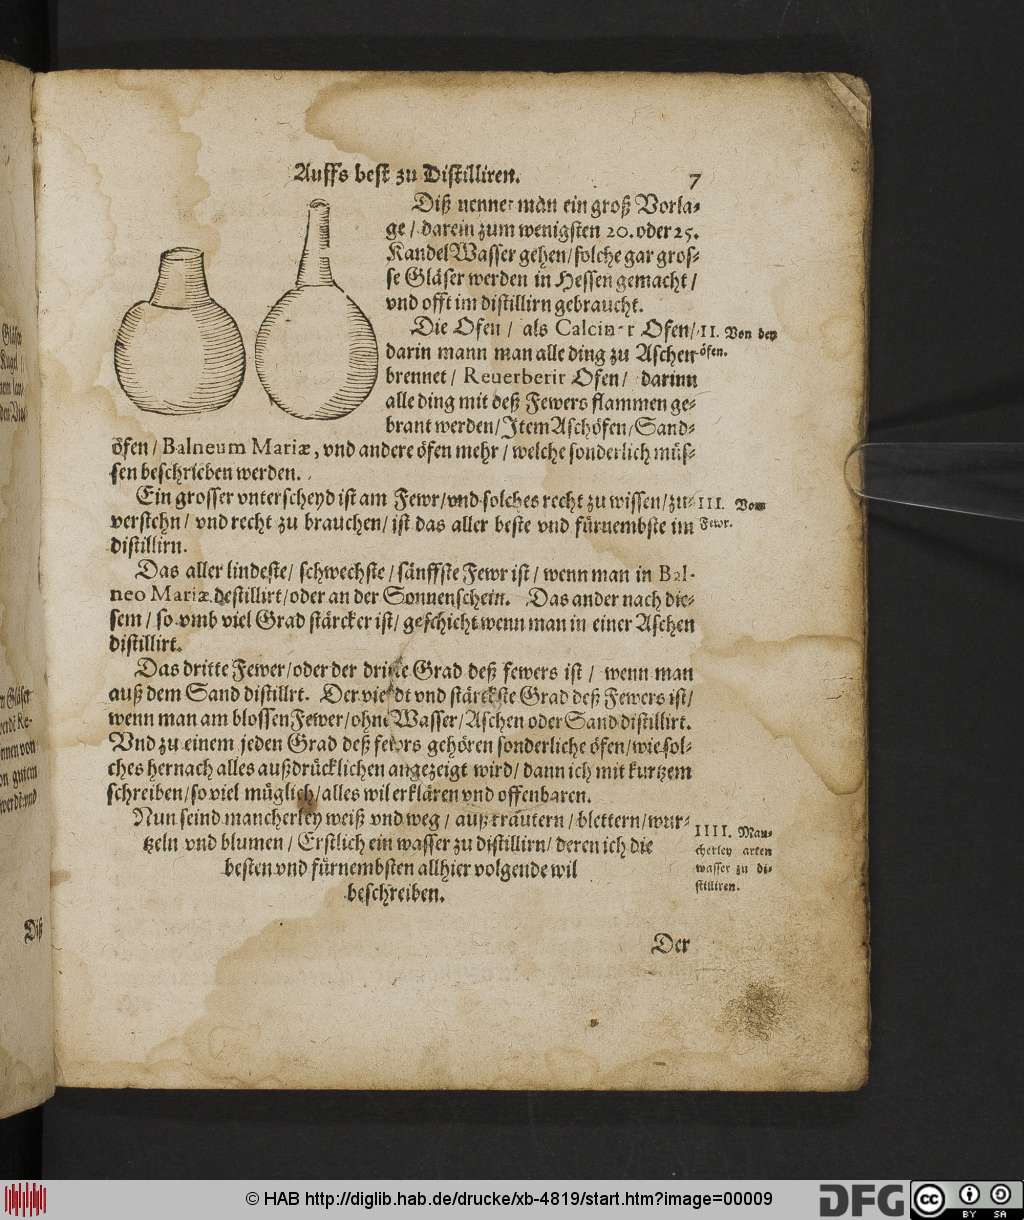 Auffs best zu Distilliren. 7
Diß nennet man ein groß Vorla-
ge / darein zum wenigsten 20. oder 25.
Kandel Wasser gehen / solche gar gros-
se Gläser werden in Hessen gemacht /
vnd offt im distillirn gebraucht.
Die Ofen / als Calcinir Ofen /
darin mann man alle ding zu Aschen
brennet / Reuerberir Ofen / darinn
alle ding mit deß Fewers flammen ge-
brant werden / Item Aschöfen / Sand-
öfen / Balneum Mariæ, vnd andere öfen mehr / welche sonderlich müs-
sen beschrieben werden.
II. Von den
öfen.
Ein grosser vnterscheyd ist am Fewr / vnd solches recht zu wissen / zu-
verstehn / vnd recht zu brauchen / ist das aller beste vnd fürnembste im
distillirn.
III. Vom
Fewr.
Das aller lindeste / schwechste / sänffste Fewr ist / wenn man in Bal-
neo Mariæ destillirt / oder an der Sonnenschein. Das ander nach die-
sem / so vmb viel Grad stärcker ist / geschicht wenn man in einer Aschen
distillirt.
Das dritte Fewer / oder der dritte Grad deß fewers ist / wenn man
auß dem Sand distillrt. Der vierdt vnd stärckste Grad deß Fewers ist /
wenn man am blossen Fewer / ohne Wasser / Aschen oder Sand distillirt.
Vnd zu einem jeden Grad deß fewrs gehören sonderliche öfen / wie sol-
ches hernach alles außdrücklichen angezeigt wird / dann ich mit kurtzem
schreiben / so viel müglich / alles wil erklären vnd offenbaren.
Nun seind mancherley weiß vnd weg / auß kräutern / blettern / wur-
tzeln vnd blumen / Erstlich ein wasser zu distillirn / deren ich die
besten vnd fürnembsten allhier volgende wil
beschreiben.
IIII. Man-
cherley arten
wasser zu di-
stilliren.
Der
Diß
© HAB http://diglib.hab.de/drucke/xb-4819/start.htm?image=00009
DFG
cc BY SA